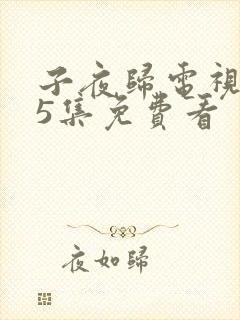 子夜歸電視
5集免費看
夜如歸